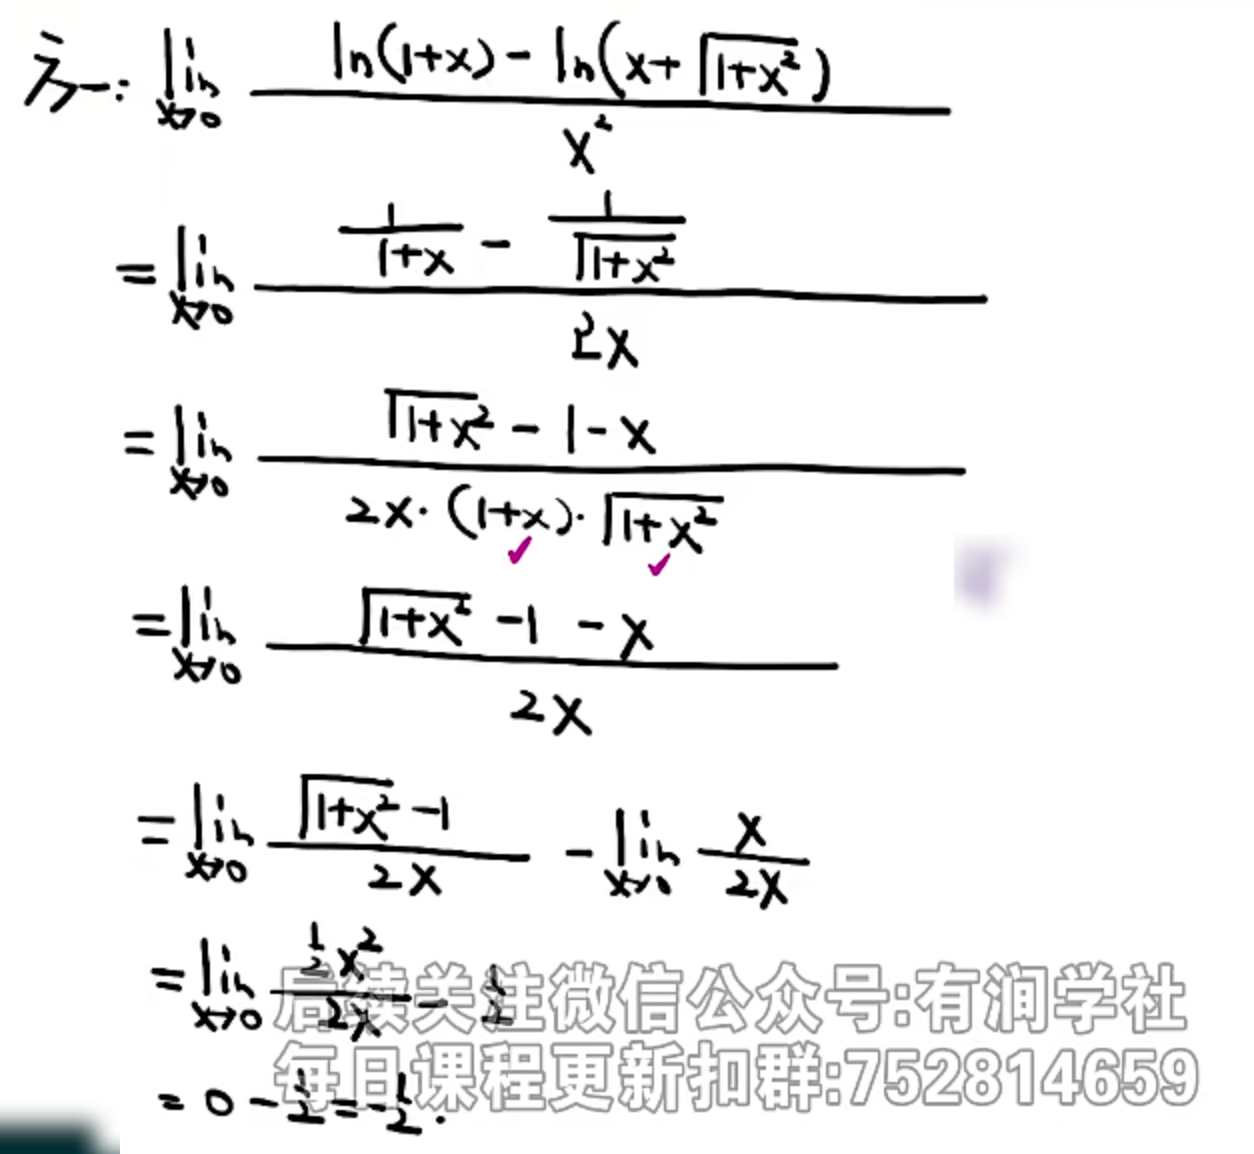 方一: lim x→0 (ln(1+x) - ln(x+√(1+x²))) / x²
= lim x→0 (1/(1+x) - 1/√(1+x²)) / 2x
= lim x→0 (√(1+x²) - 1 - x) / (2x·(1+x)·√(1+x²))
= lim x→0 (√(1+x²) - 1 - x) / 2x
= lim x→0 (√(1+x²) - 1) / 2x - lim x→0 x/2x
= lim x→0 (½x²) / 2x - ½
后续关注微信公众号:有润学社
每日课程更新扣群:752814659
= 0 - ½ = -½.